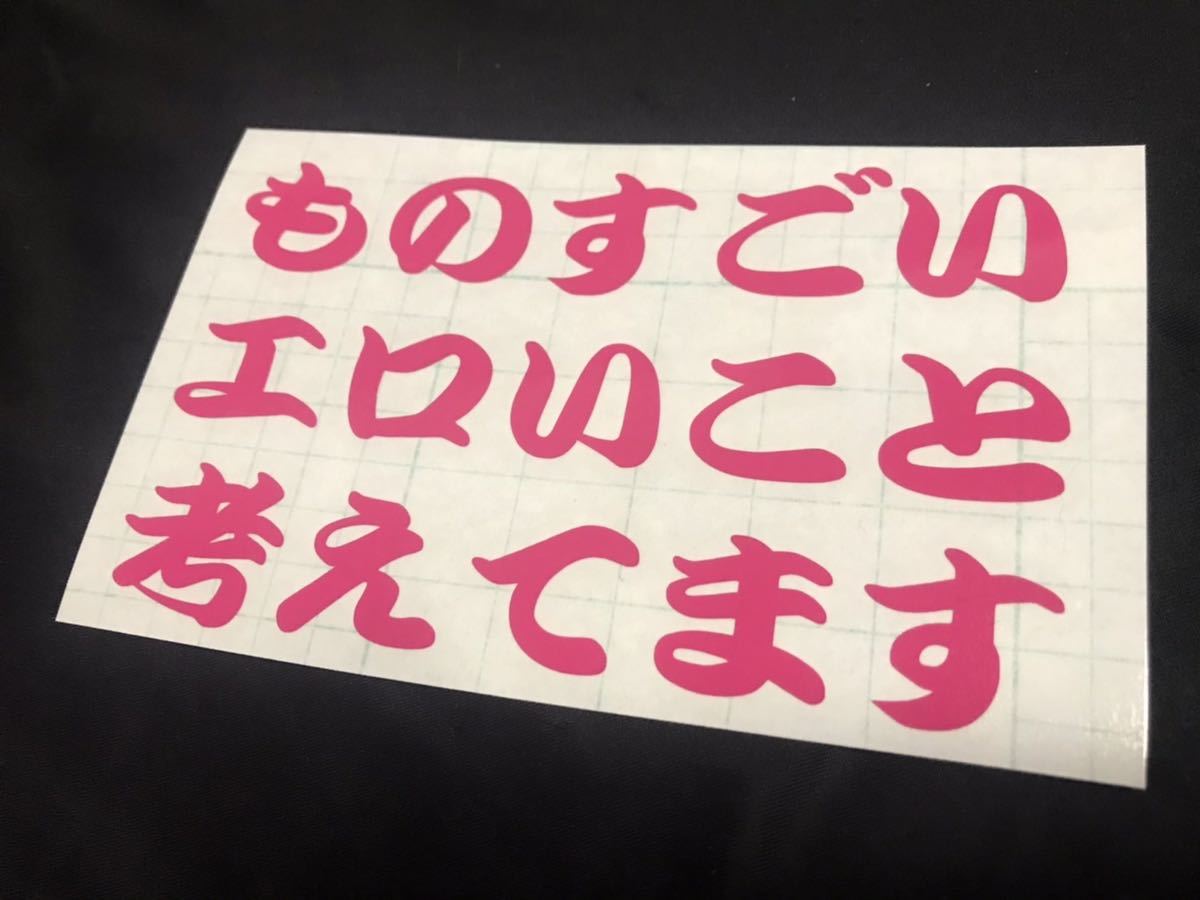 ものすごい
エロいこと
考えてます